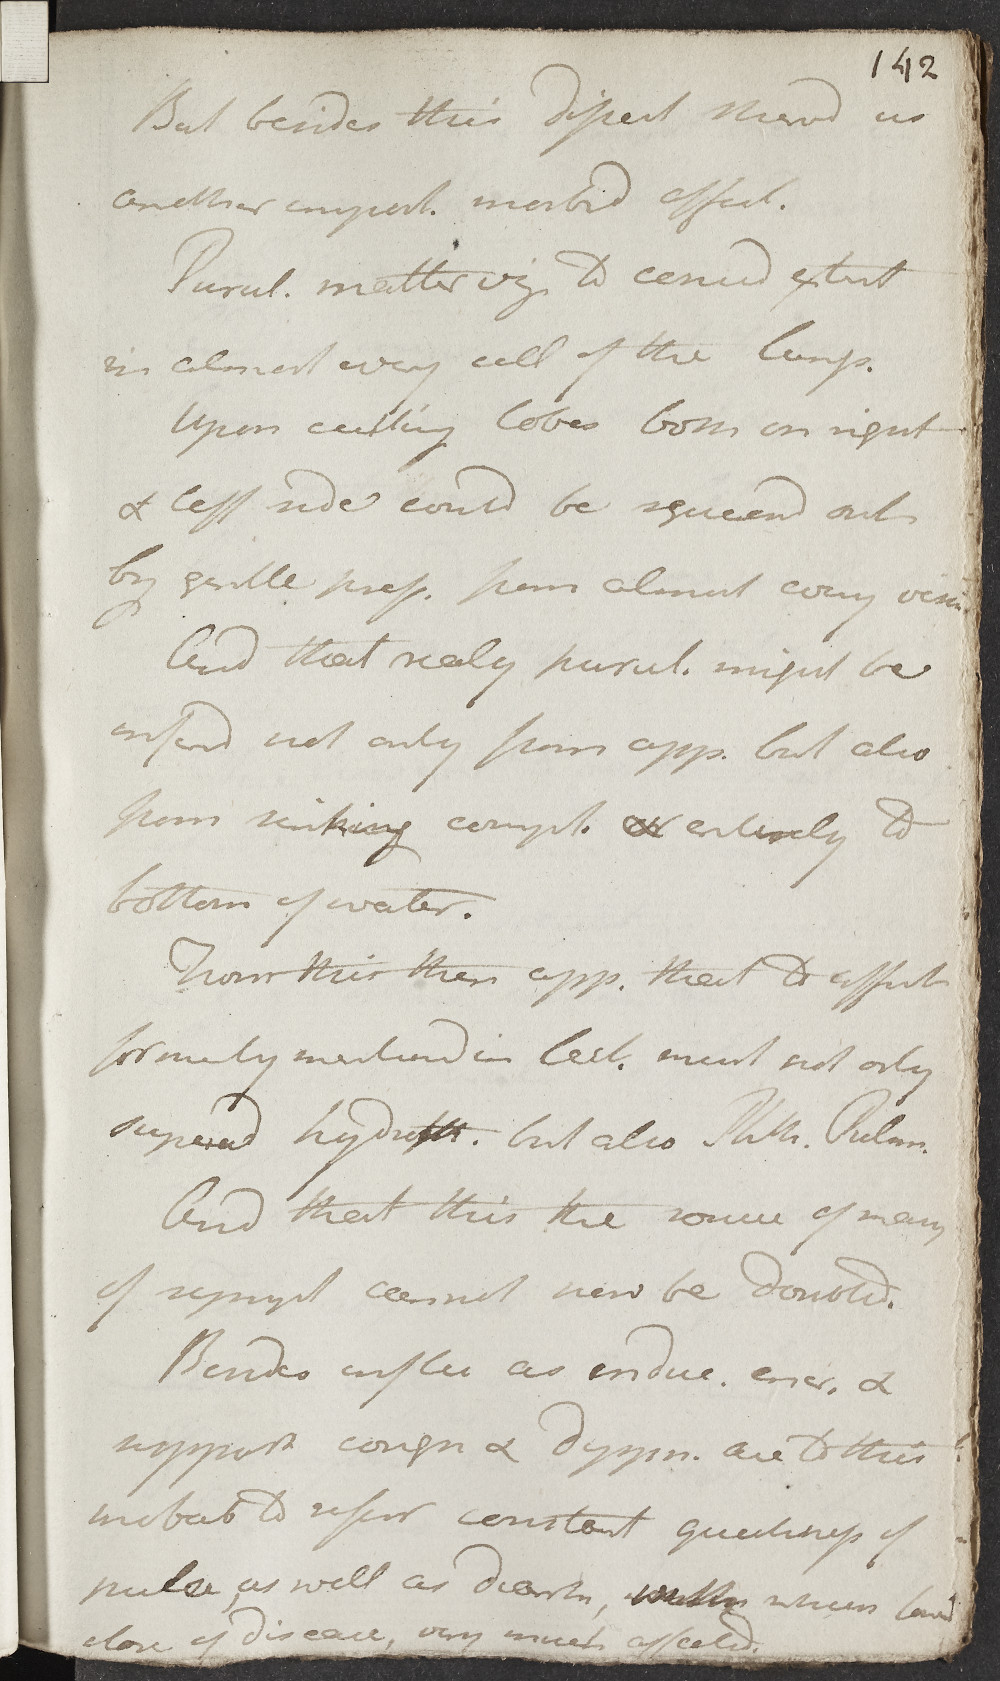 142
But besides this dissect shewd us
another import. morbid affect.
Purul. matter viz to consid extent
in almost every cell of the lungs.
Upon cutting lobes both on right
& left side could be squeezd out
by gentle press. from almost every
And that realy purul. might be
inferd not only from app. but also
from sinking compl. or entirely to
bottom of water.
From this then app. that to affect
formerly mentiond in lect. must not only
superad hydroth. but also Phth. Pulm.
And that this the source of many
of sympt cannot now be doubtd.
Besides influ as induc. encr. &
support cough & dyspn. are to this
probab to refer constant quickness of
pulse, as well as diarrh, with which toward
close of disease, very much affected.